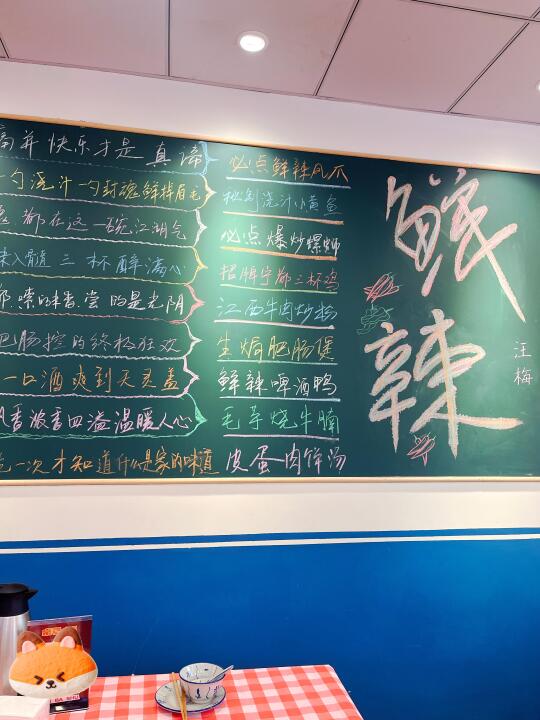 并快乐才是真谛
一勺浇汁一勺封魂鲜掉眉毛
都在这一碗江湖气
入髓三杯醉满心
嗦的味香尝的是光阴
肥肠控的终极狂欢
一口酒爽到天灵盖
香浓香四溢温暖人心
一次才知道什么是家的味道
必点鲜辣凤爪
秘制浇汁小黄鱼
必点爆炒螺蛳
招牌宁都三杯鸡
江西牛肉炒粉
生焗肥肠煲
鲜辣啤酒鸭
毛芋烧牛腩
皮蛋肉饼汤
鲜辣
汪梅